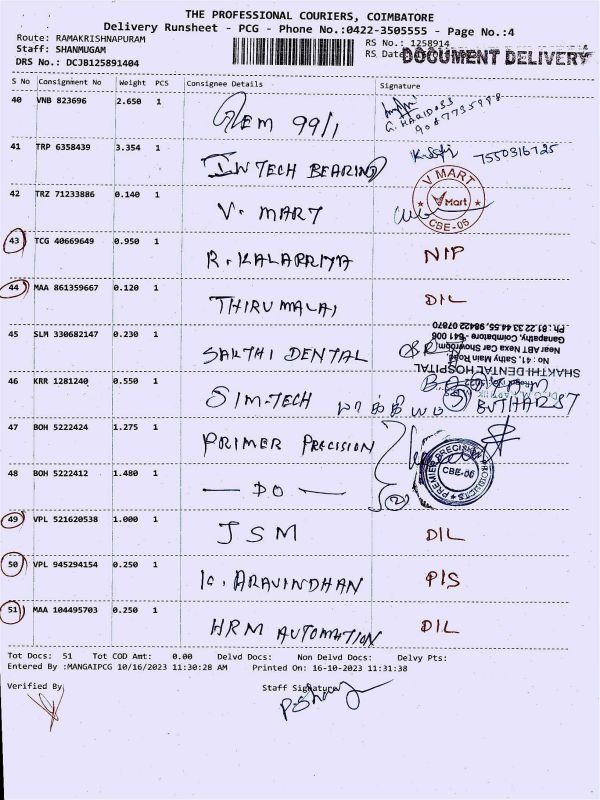 THE PROFESSIONAL COURIERS, COIMBATORE
Delivery Runsheet - PCG - Phone No.:0422-3505555 - Page No.:4
Route: RAMAKRISHNAPURAM
RS No.: 1258914
Staff: SHANMUGAM
RS Date
DOCUMENT DELIVERY
DRS No.: DCJB125891404
S No Consignment No Weight PCS Consignee Details Signature
40 VNB 823696 2.650 1 GEM 99/1 G. HARIDOSS
41 TRP 6358439 3.354 1 INTECH BEARING 7550316725
42 TRZ 71233886 0.140 1 V. MART
V MART
V Mart
CBE-06
43 TCG 40669649 0.950 1 R. KALAPRIYA NIP
44 MAA 861359667 0.120 1 THIRUMALAI DIL
45 SLM 330682147 0.230 1 SAKTHI DENTAL
SHAKTHI DENTAL HOSPITAL
No : 41, Sathy Main Road
Near ABT Nexa Car Showroom,
Ganapathy, Coimbatore - 641 006
Ph : 81 22 33 44 55, 98422 07870
46 KRR 1281240 0.550 1 SIM-TECH
47 BOH 5222424 1.275 1 PRIMER PRECISION
PREMIER PRECISION PRODUCTS
CBE-06
48 BOH 5222412 1.480 1 — DO — 2
49 VPL 521620538 1.000 1 JSM DIL
50 VPL 945294154 0.250 1 K. ARAVINDHAN PIS
51 MAA 104495703 0.250 1 HRM AUTOMATION DIL
Tot Docs: 51 Tot COD Amt: 0.00 Delvd Docs: Non Delvd Docs: Delvy Pts:
Entered By :MANGAIPCG 10/16/2023 11:30:28 AM Printed On: 16-10-2023 11:31:38
Verified By Staff Signature